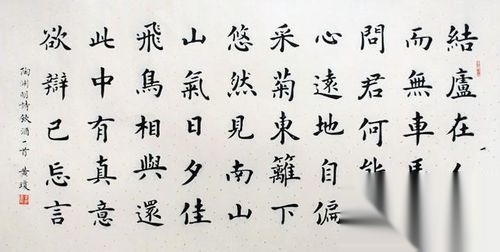 結廬在
而無車馬
問君何能
心遠地自偏
采菊東籬下
悠然見南山
山氣日夕佳
飛鳥相與還
此中有真意
欲辯已忘言
陶渊明詩飲酒一首 黄